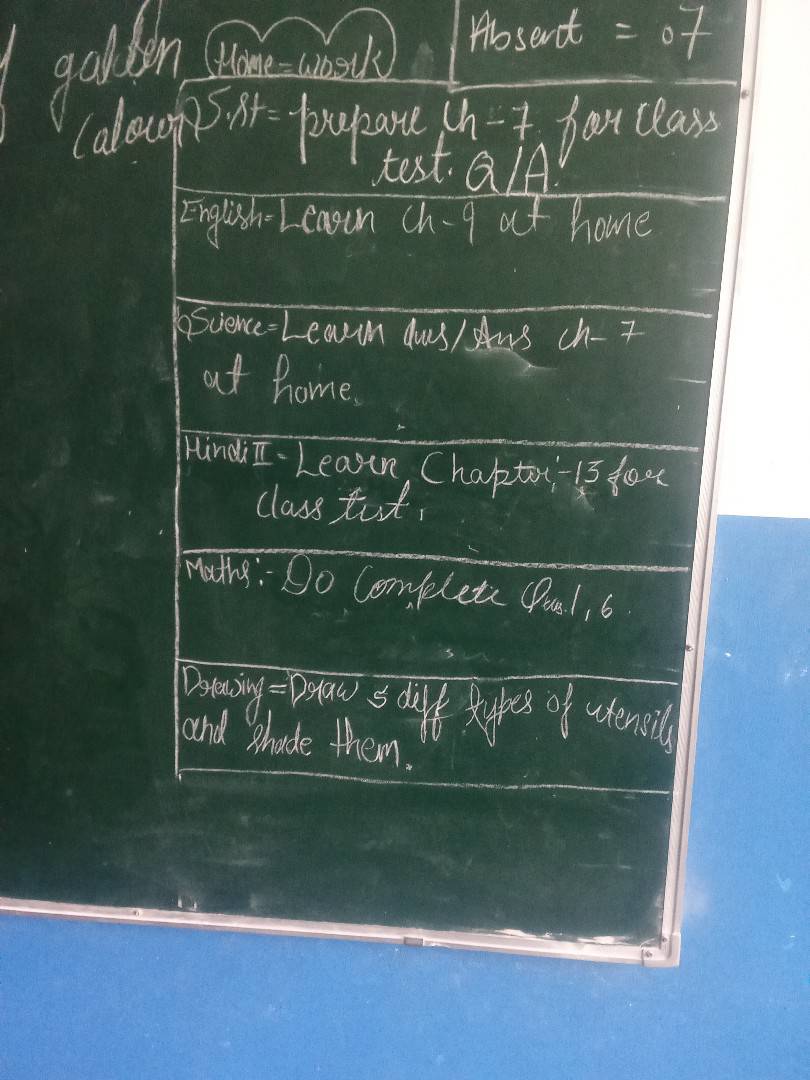 Absent = 07
garden
Home=work
(alour)
S.St= prepare Ch-7 for class
test. Q/A
English= Learn Ch-9 at home
Science= Learn Ques/Ans ch-7
at home.
Hindi II- Learn Chapter:-13 for
class test.
Maths:- Do Complete Ques.1, 6
Drawing = Draw 5 diff types of utensils
and shade them.